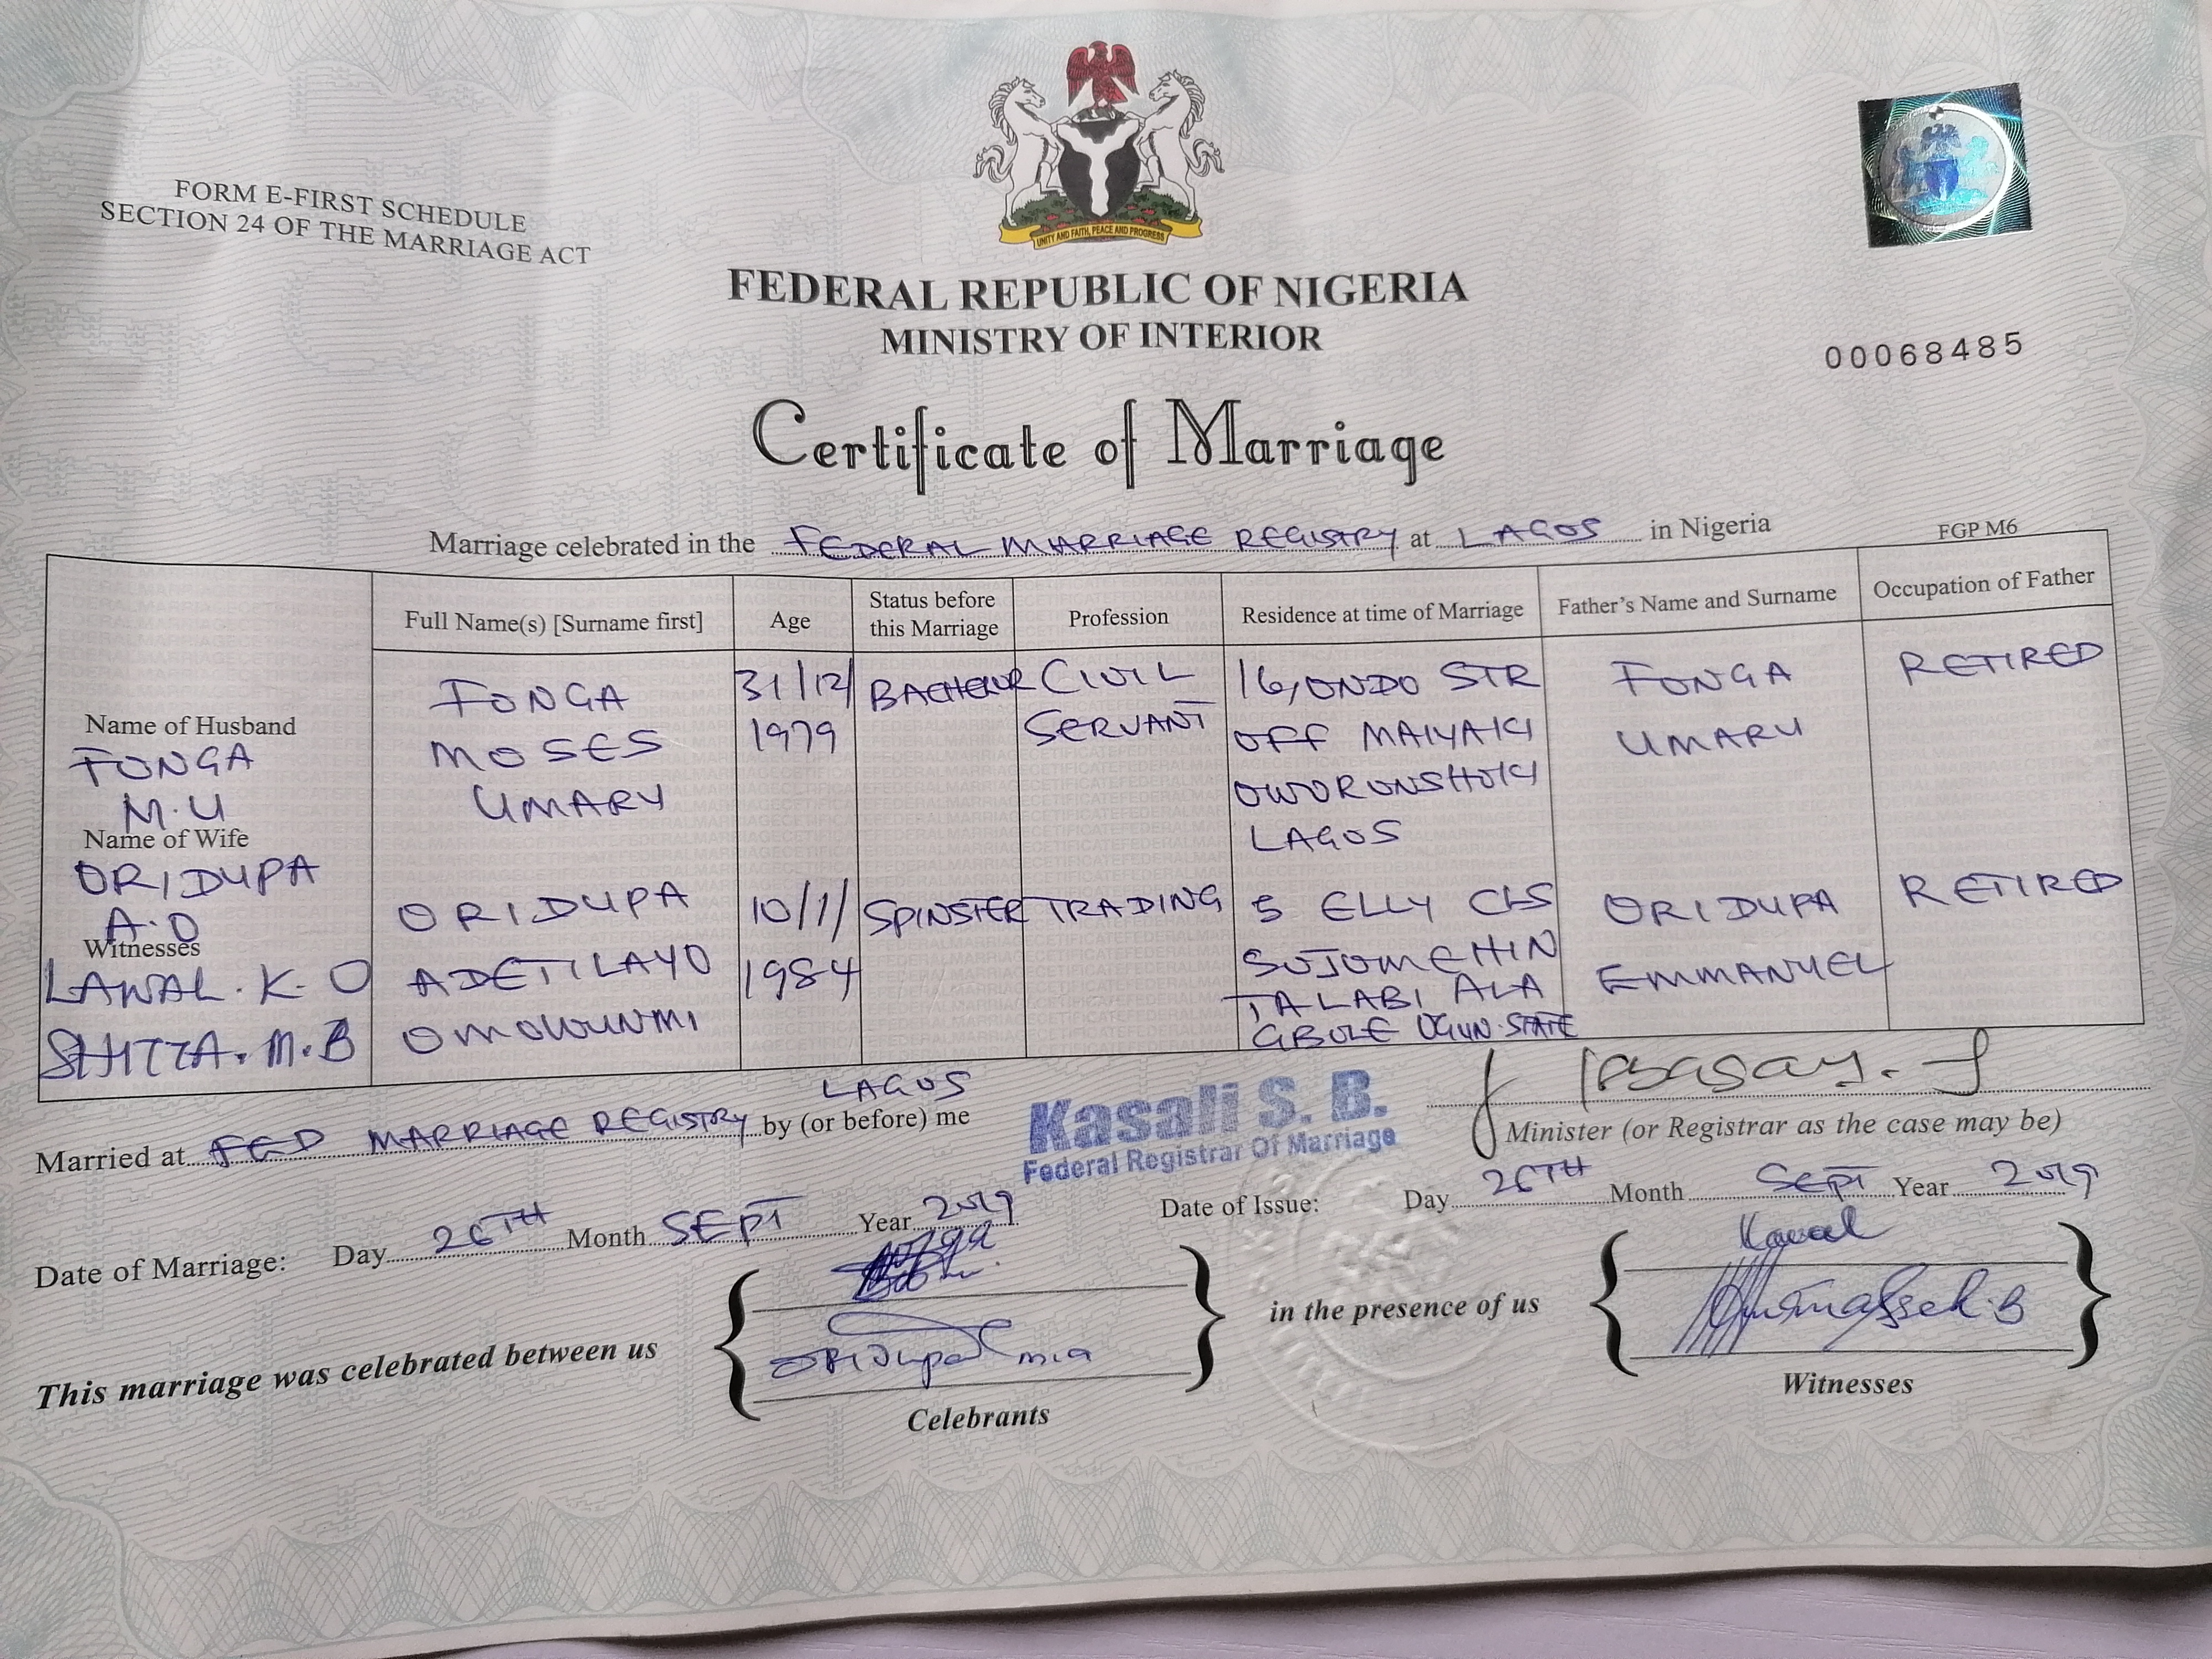 UNITY AND FAITH, PEACE AND PROGRESS
FORM E-FIRST SCHEDULE
SECTION 24 OF THE MARRIAGE ACT
FEDERAL REPUBLIC OF NIGERIA
MINISTRY OF INTERIOR
00068485
Certificate of Marriage
Marriage celebrated in the FEDERAL MARRIAGE REGISTRY at LAGOS in Nigeria
FGP M6
Full Name(s) [Surname first]
Age
Status before
this Marriage
Profession
Residence at time of Marriage
Father's Name and Surname
Occupation of Father
Name of Husband
FONGA
M.U
FONGA
MOSES
UMARU
31/12/
1979
BACHELOR
CIVIL
SERVANT
16, ONDO STR
OFF MAIYAKI
OWORONSHOKI
LAGOS
FONGA
UMARU
RETIRED
Name of Wife
ORIDUPA
A.O
ORIDUPA
ADETILAYO
OMOWUNMI
10/1/
1984
SPINSTER
TRADING
5 ELLY CLS
SOJUMEHIN
TALABI ALA
GBOLE OGUN STATE
ORIDUPA
EMMANUEL
RETIRED
Witnesses
LAWAL. K. O
SHITTA. M. B
LAGOS
Married at FED MARRIAGE REGISTRY by (or before) me
Kasali S. B.
Federal Registrar Of Marriage
Minister (or Registrar as the case may be)
Date of Marriage: Day 26TH Month SEPT Year 2019
Date of Issue: Day 26TH Month SEPT Year 2019
This marriage was celebrated between us
Oridupa
Celebrants
in the presence of us
Witnesses